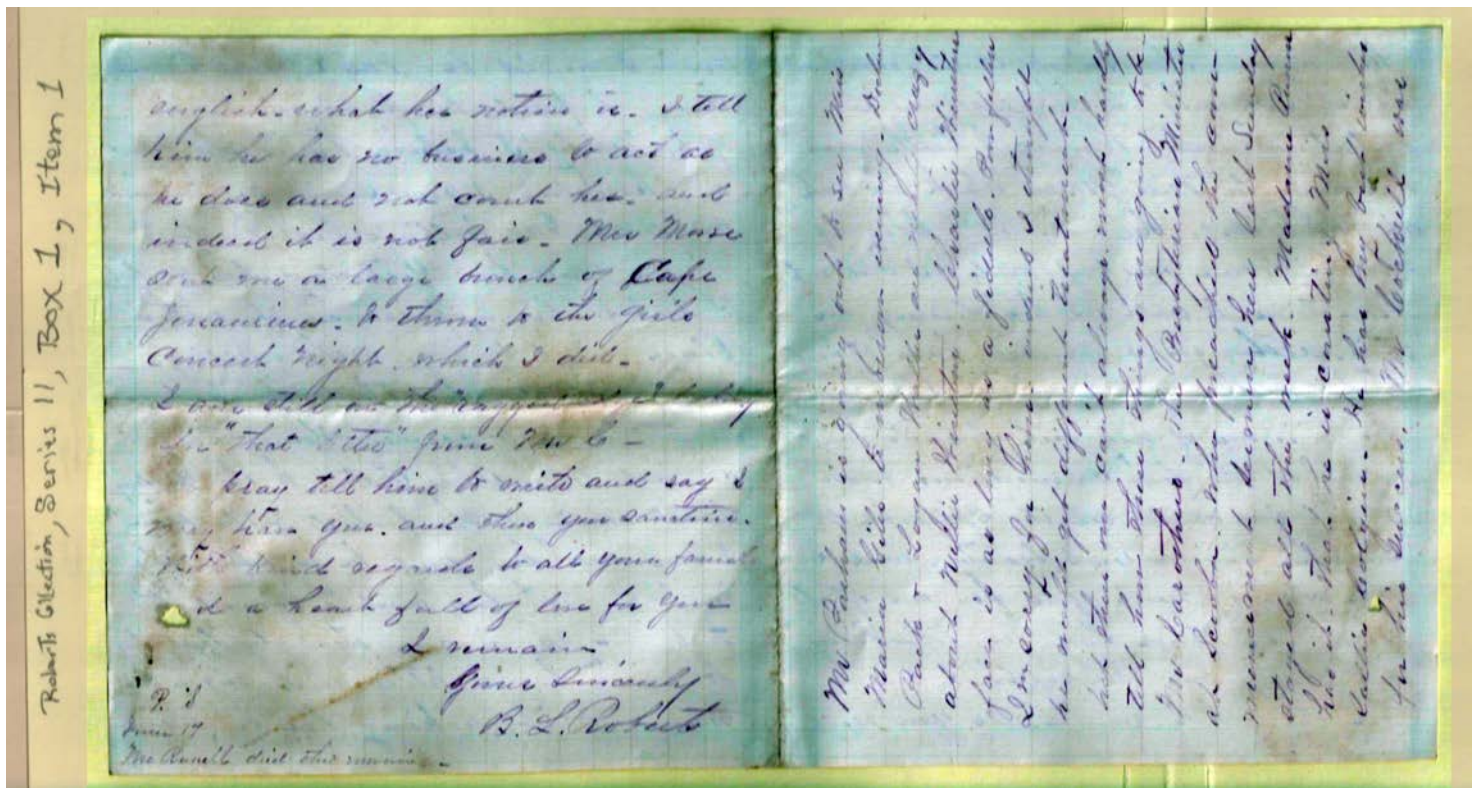 Roberts Collection, Series 11, Box 1, Item 1
english what her notion is. I tell
him he has no business to act as
he does and not court her. and
indeed it is not fair. Mrs Morse
sent me a large bunch of Cape
to throw to the girls
Concert night. which I did.
I am still on the "ragged edge"
"that letter" from Mr C -
pray tell him to write and say I
may have you. and thus you
kind regards to all your family
a heart full of love for you
I remain
Yours Sincerely
B. L. Roberts
P. S
June 17
died this morning.
Mr Parham is going out to see Miss
Maria this evening. Both
& Logan are nearly crazy
about Willie Winston. Charlie Winston
face is as long as a fiddle.
I'm sorry for him. indeed I thought
he would get different treatment.
but then one can't always most hardly
tell how these things are going to be.
Mr Carothers. the Presbyterian Minister
at Scooba. who preached the com-
mencement sermon here last Sunday
stayed all the week. Madame Rumor
has it. that he is courting Miss
Sallie. He has my best wishes
for his success. Mr was